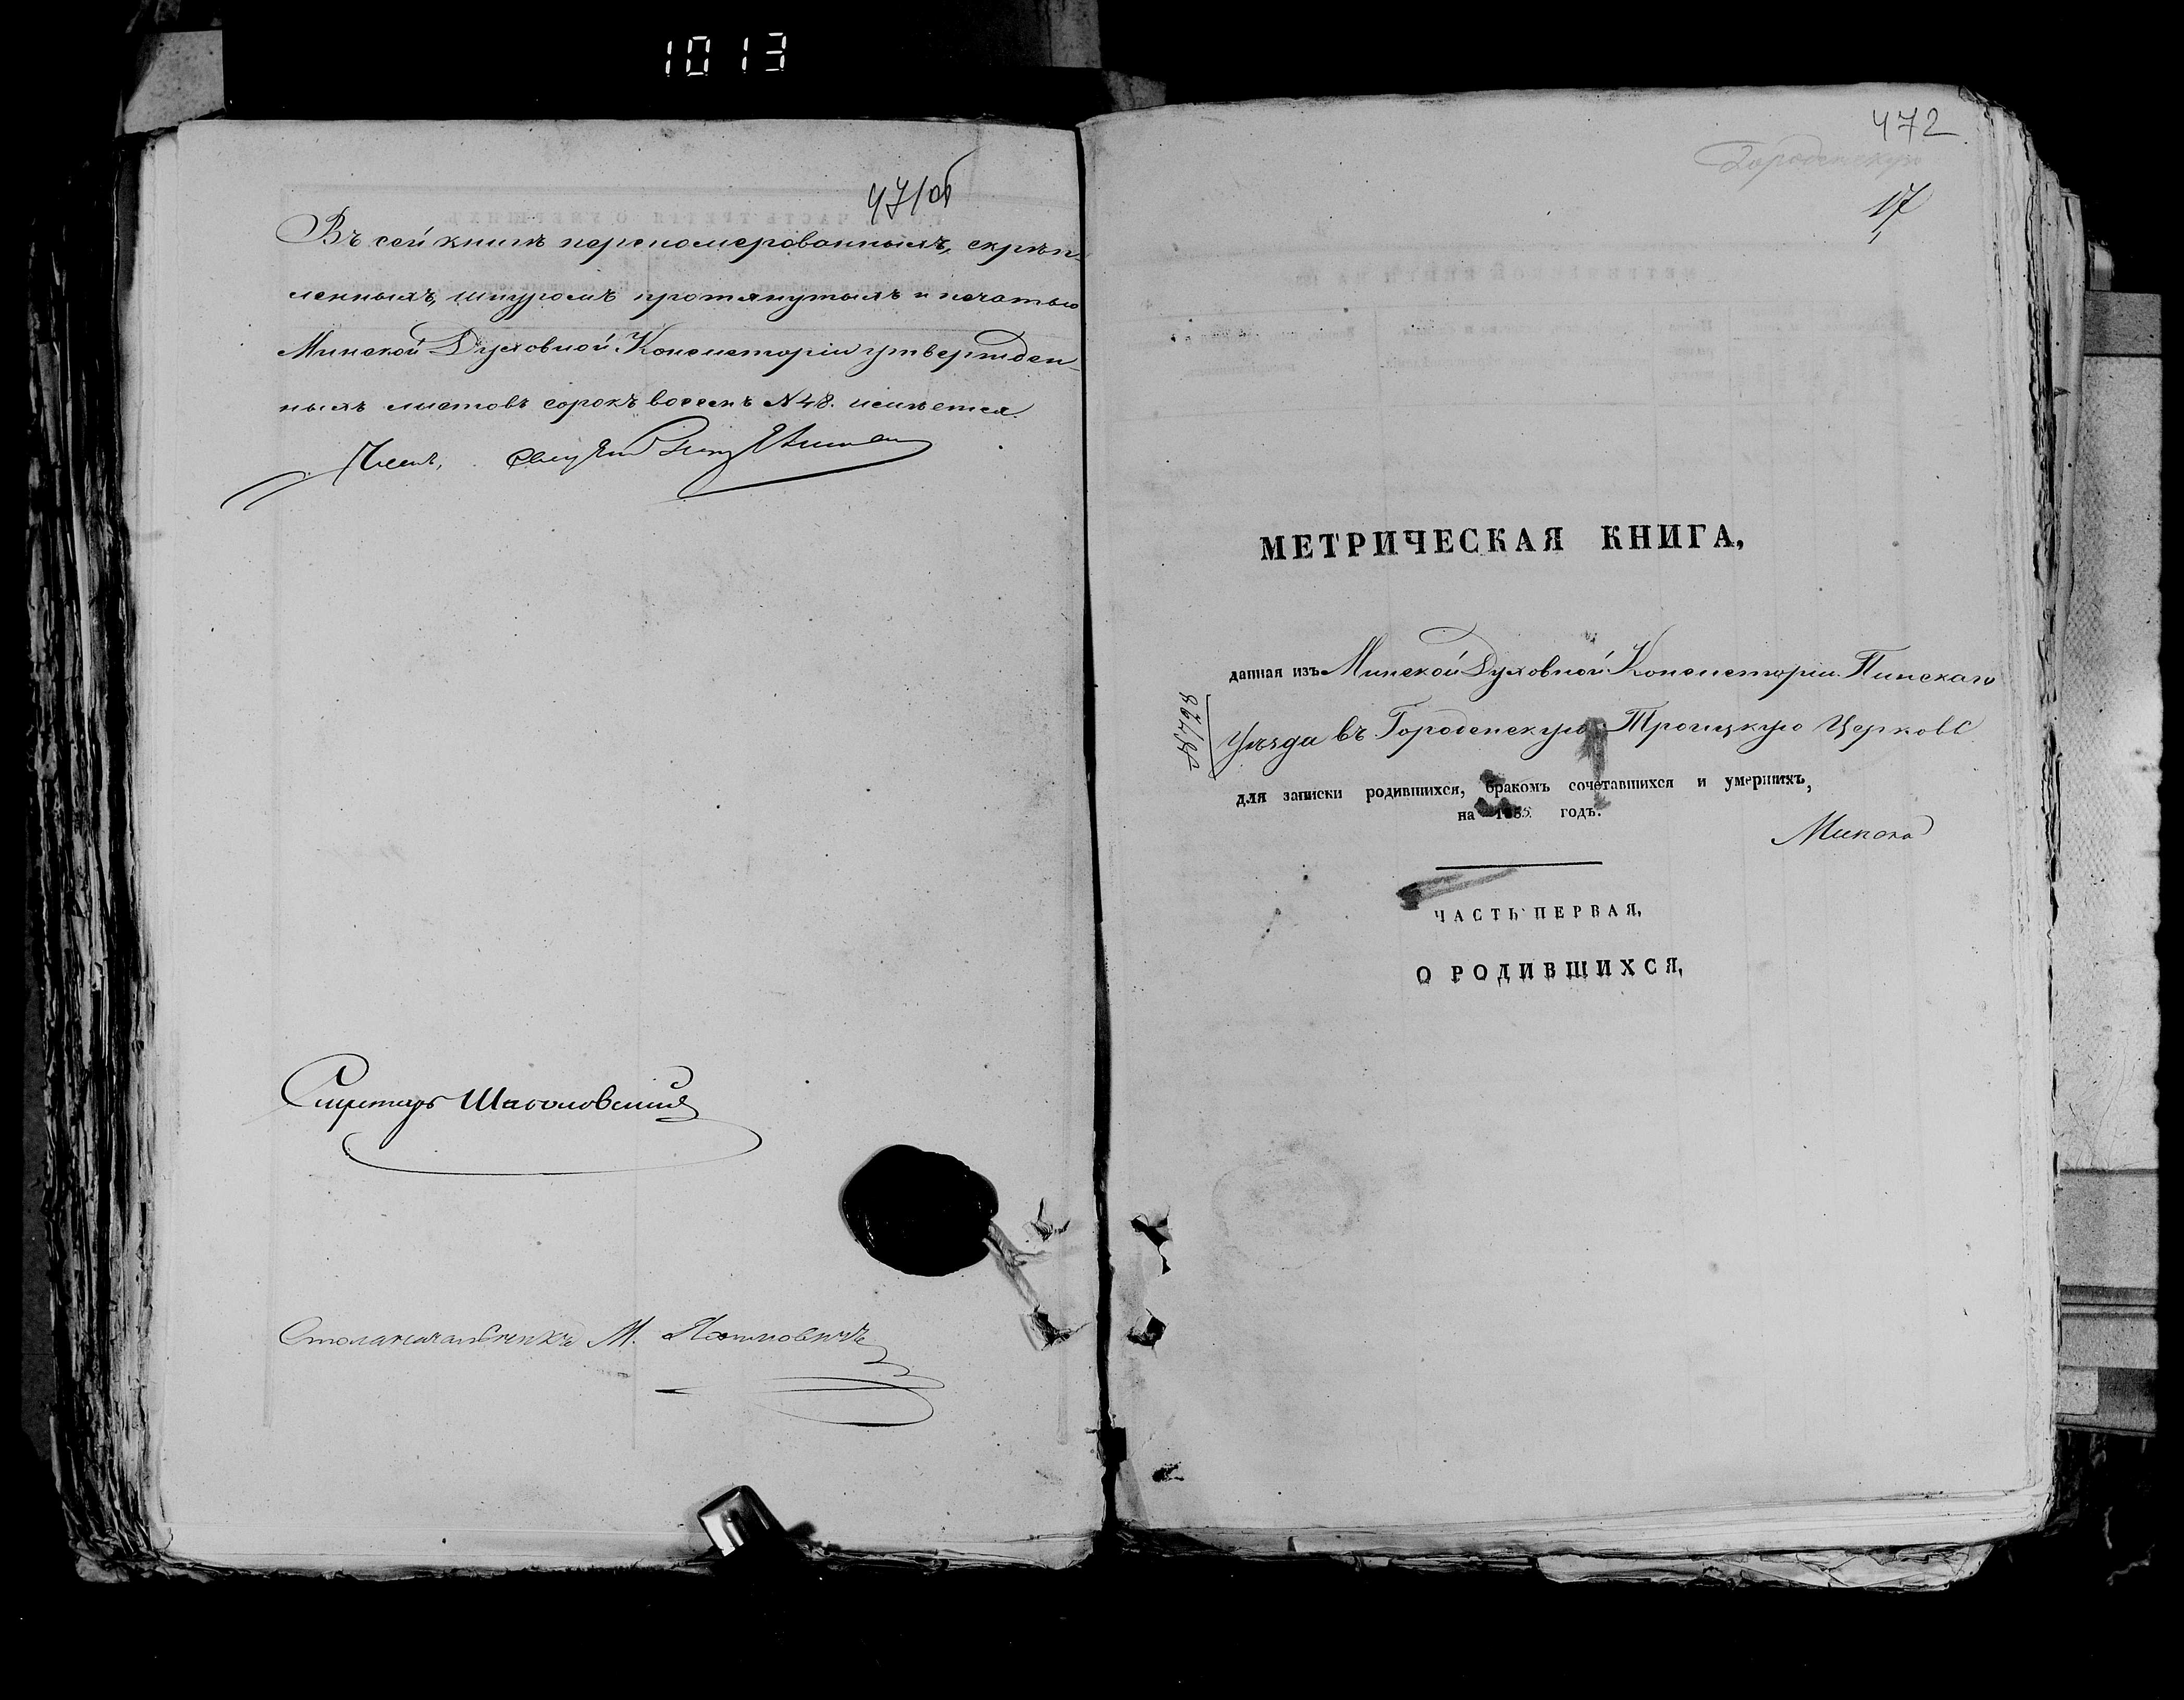 1013
471об
Въ сей книгѣ переномерованныхъ, скрѣп-
ленныхъ, шнуромъ протянутыхъ и печатью
Минской Духовной Консисторіи утвержден-
ныхъ листовъ сорокъ восемь №48. имѣется.
Членъ,
Секретарь
Столоначальникъ М.
472
Городенскую
17
МЕТРИЧЕСКАЯ КНИГА,
данная изъ Минской Духовной Консисторіи Пинскаго
Уѣзда въ Городенскую Троицкую Церковь
для записки родившихся, бракомъ сочетавшихся и умершихъ,
на 1855 годъ.
Минска
ЧАСТЬ ПЕРВАЯ,
О РОДИВШИХСЯ,